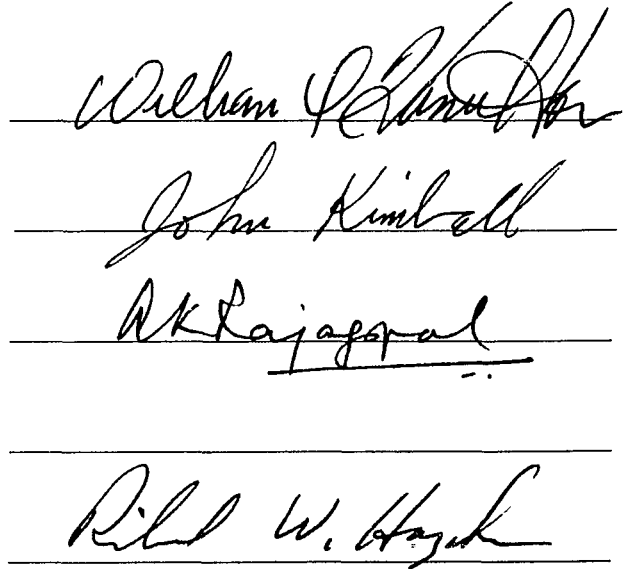 William
John Kimball
AK Rajagopal
Richard W.